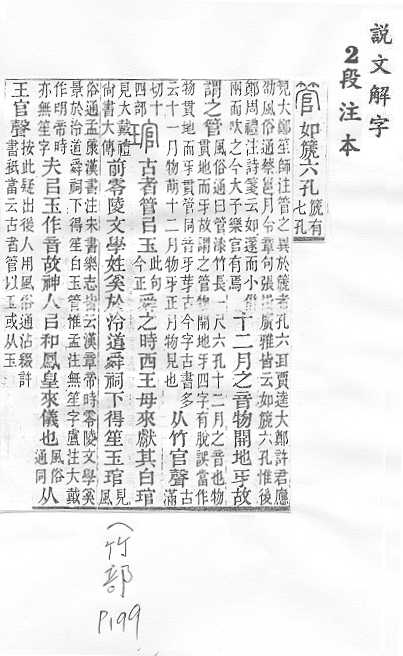 說文解字
2段注本
管 如篪六孔 篪有七孔
見大鄭笙師注管之異於篪者孔六耳賈逵大鄭許君應
劭風俗通蔡邕月令章句張揖廣雅皆云如篪六孔惟後
鄭周禮注詩箋云如篴而小併
兩而吹之今大予樂官有焉 十二月之音物開地牙故
謂之管 風俗通曰管漆竹長一尺六孔十二月之音也物
貫地而牙故謂之管物開地牙四字有脫誤當作
物貫地而牙貫管同音牙芽古今字古書多
云十一月物萌十二月物牙正月物見也 从竹官聲 古滿
切十四部 琯 古者管㠯玉 此句今正 舜之時西王母來獻其白琯
見大戴禮尚書大傳 前零陵文學姓奚於泠道舜祠下得笙玉琯 見風
俗通孟康漢書注宋書樂志皆云漢章帝時零陵文學奚
景於泠道舜祠下得笙白玉管惟孟注無笙字盧注大戴
作明帝時亦無笙字 夫㠯玉作音故神人㠯和鳳皇來儀也 風俗通同 从
王官聲 按此疑出後人用風俗通沾綴許書秖當云古者管以玉或从玉
(竹部
P199